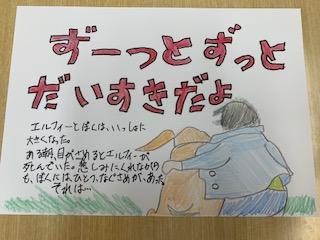 ずーっとずっと
だいすきだよ
エルフィーとぼくは、いっしょに
大きくなった。
ある朝、目がさめるとエルフィーが
死んでいた。悲しみにくれながら
も、ぼくには、ひとつ、なぐさめが、あった。
それは…